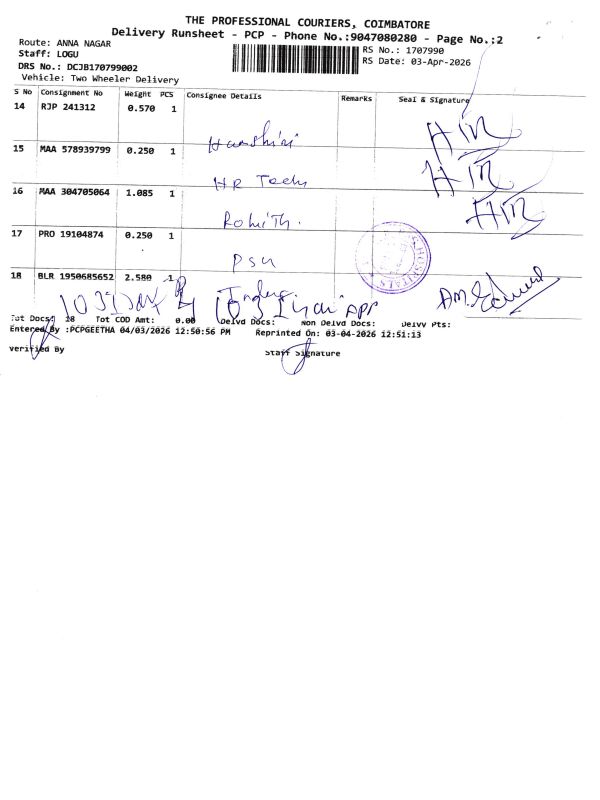 THE PROFESSIONAL COURIERS, COIMBATORE
Delivery Runsheet - PCP - Phone No.:9047080280 - Page No.:2
Route: ANNA NAGAR
Staff: LOGU
DRS No.: DCJB170799002
Vehicle: Two Wheeler Delivery
RS No.: 1707990
RS Date: 03-Apr-2026
S No Consignment No Weight PCS Consignee Details Remarks Seal & Signature
14 RJP 241312 0.570 1
15 MAA 578939799 0.250 1
HR Tech
16 MAA 304705064 1.085 1
Rohith.
17 PRO 19104874 0.250 1
PSU
18 BLR 1950685652 2.580 1
Tot Docs: 18 Tot COD Amt: 0.00 Delvd Docs: Non Delvd Docs: Delvy Pts:
Entered By :PCPGEETHA 04/03/2026 12:50:56 PM Reprinted On: 03-04-2026 12:51:13
Verified By Staff Signature